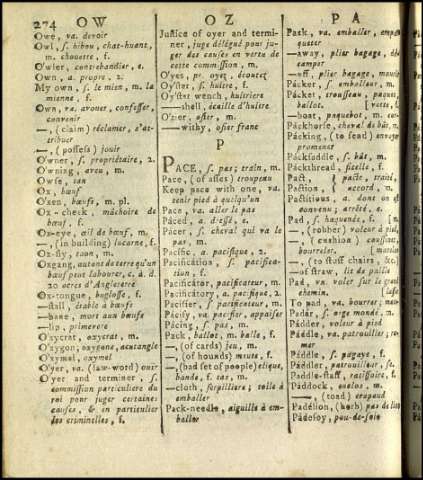 274 OW
OZ
PA
Owe, va. devoir
Owl, ſ. hibou, chat-huant,
m. chouette, f.
O'wler, contrebandier, s.
Own, a. propre, 2.
My own, ſ. le mien, m. la
mienne, f.
Own, va. avouer, confeſſer,
convenir
—, (claim) réclamer, s'at-
tribuer
—, (poſſeſs) jouir
O'wner, ſ. propriétaire, 2.
O'wning, aveu, m.
Owſe, tan
Ox, bœuf
O'xen, bœufs, m. pl.
Ox-check, mâchoire de
bœuf, f.
Ox-eye, œil de bœuf, m.
—, (in building) lucarne, f.
Ox-fly, taon, m.
Oxgang, autant de terre qu'un
bœuf peut labourer, c. à. d.
20 acres d'Angleterre
Ox-tongue, bugloſſe, f.
—ſtall, étable à bœufs
—bane, mort aux bœufs
—lip, primevere
O'xycrat, oxycrat, m.
O'xygon, oxygone, acutangle
O'xymel, oxymel
O'yer, va. (law-word) ouir
Oyer and terminer, ſ.
commiſſion particuliere du
roi pour juger certaines
cauſes, & en particulier
les criminelles, f.
Juſtice of oyer and termi-
ner, juge délégué pour ju-
ger des cauſes en verte de
cette commiſſion, m.
O'yes, pr. oyez, écoutez
O'yſter, ſ. huître, f.
O'yſter wench, huîtriere
—ſhell, écaille d'huître
O'zier, oſier, m.
—withy, oſier franc
P
PACE, ſ. pas; train, m.
Pace, (of aſſes) troupeau
Keep pace with one, va.
tenir pied à quelqu'un
Pace, va. aller le pas
Páced, a. d'eſſé, e.
Pácer, ſ. cheval qui va le
pas, m.
Pacífic, a. pacifique, 2.
Pacification, ſ. pacifica-
tion, f.
Pacificátor, pacificateur, m.
Pacíficatory, a. pacifique, 2.
Pácifier, ſ. pacificateur, m.
Pácify, va. pacifier, appaiſer
Pácing, ſ. pas, m.
Pack, ballot, m. balle, f.
—, (of cards) jeu, m.
—, (of hounds) meute, f.
—, (bad ſet of people) clique,
bande, f. tas, m.
—cloth, ſerpilliere; toile à
emballer
Pack-needle, aiguille à em-
baller
Pack, va. emballer, empa-
queter
—away, plier bagage, déc
camper
—off, plier bagage, mourir
Pácker, ſ. emballeur, m.
Pácket, trouſſeau, paquet,
ballot. [vette, f.
—boat, paquebot, m. cor-
Páckhorſe, cheval de bât, m.
Pácking, (to ſend) envoyer
promener
Páckſaddle, ſ. bât, m.
Páckthread, ficelle, f.
Pact, } pacte, traité,
Páction, } accord, m.
Pactítious, a. dont on eſt
convenu; arrêté, e.
Pad, ſ. haquenée, f.
— (robber) voleur à pied,
—, (cuſhion) couſſinet,
bourrelet,
—, (to ſtuff chairs, &c.)
—of ſtraw, lit de paille
Pad, va. voler ſur le grand
chemin.
To pad, va. bourrer;
Padár, ſ. orge mondé, 2.
Pádder, voleur à pied
Páddle, va. patrouiller; ra-
mer
Páddle, ſ. pagaye, f.
Páddler, patrouilleur, ſe.
Paddle-ſtaff, raclſoire, f.
Páddock, enclos, m.
—, (toad) crapaud
Padélion, (herb) pas de lion
Pádeſoy, pou-de-ſoie